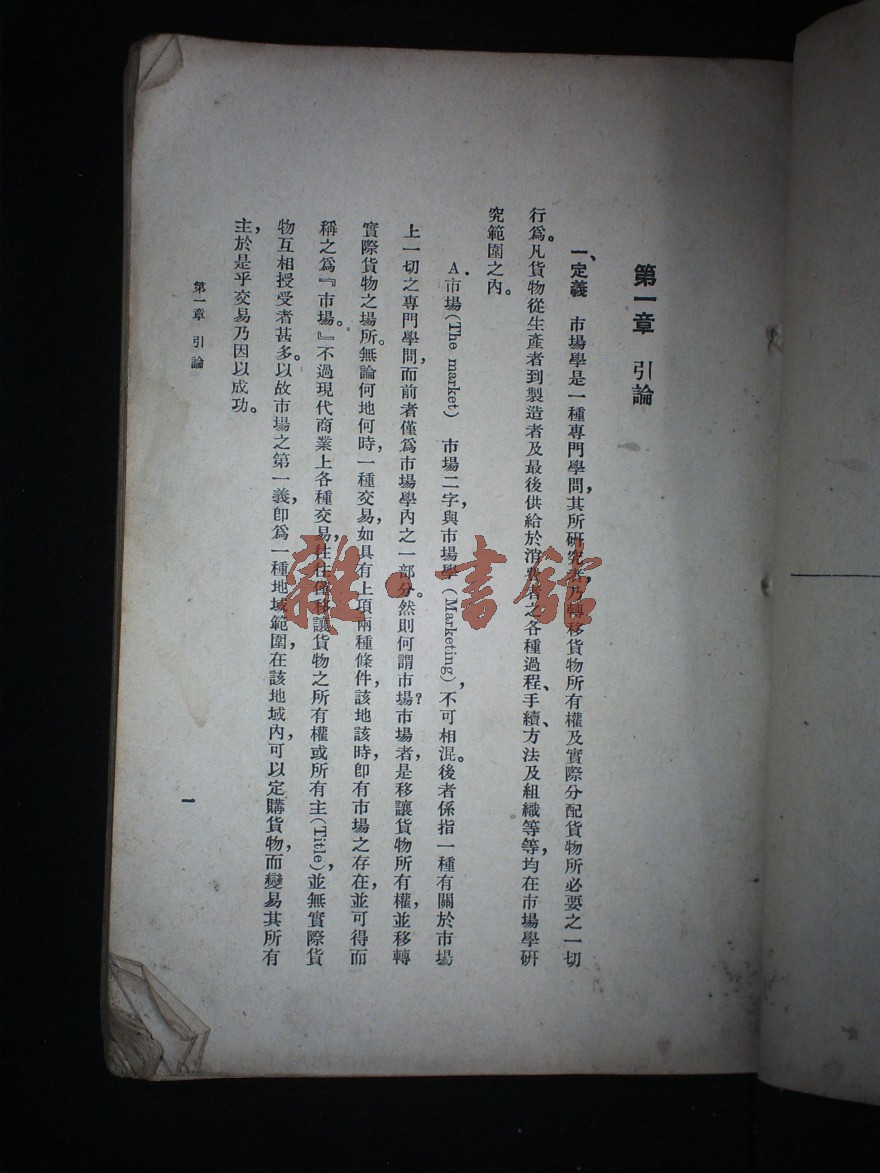 第一章　引論
一、定義　市場學是一種專門學問，其所研究者，乃轉移貨物所有權及實際分配貨物所必要之一切
行爲。凡貨物從生產者到製造者及最後供給於消費者之各種過程、手續、方法及組織等等，均在市場學研
究範圍之內。
A. 市場(The market)　市場二字，與市場學(Marketing)，不可相混。後者係指一種有關於市場
上一切之專門學問，而前者僅爲市場學內之一部分。然則何謂市場？市場者，是移讓貨物所有權，並移轉
實際貨物之場所。無論何地何時，一種交易，如具有上項兩種條件，該地該時，卽有市場之存在，並可得而
稱之爲『市場。』不過現代商業上各種交易，往往僅移讓貨物之所有權或所有主(Title)，並無實際貨
物互相授受者甚多。以故市場之第一義，卽爲一種地域範圍，在該地域內，可以定購貨物，而變易其所有
主，於是乎交易乃因以成功。
第一章　引論
一
雜·書館